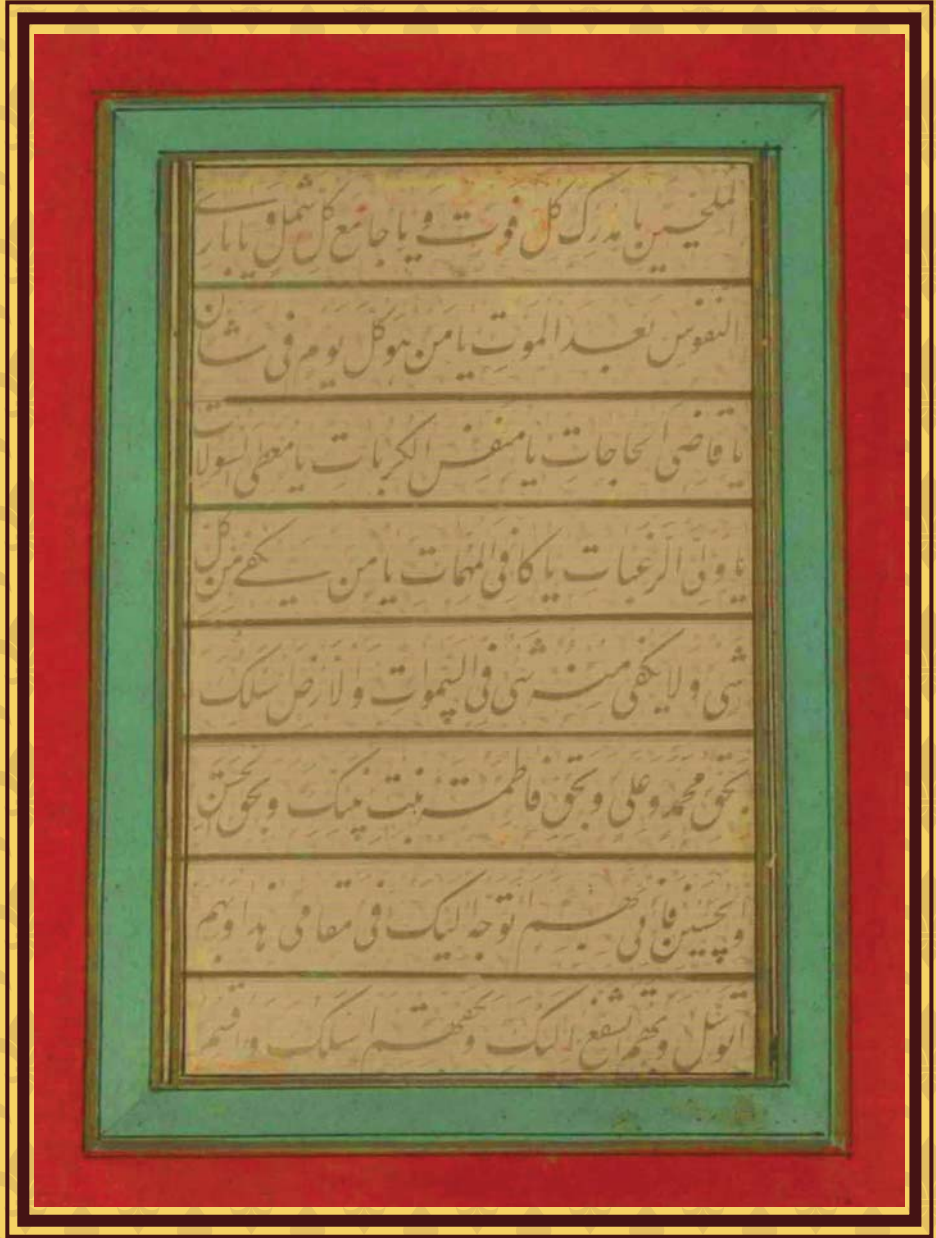 الملحین یا مدرک کل فوت و یا جامع کل شمل و یا باری
النفوس بعد الموت یا من هو کل یوم فی شان
یا قاضی الحاجات یا منفس الکربات یا معطی السولات
یا ولی الرغبات یا کافی المهمات یا من یکفی من کل
شی و لا یکفی منه شی فی السموات و الارض اسئلک
بحق محمد و علی و بحق فاطمة بنت نبیک و بحق الحسن
و الحسین فانی بهم اتوجه الیک فی مقامی هذا و بهم
اتوسل و بهم اتشفع الیک و بحقهم اسئلک و اقسم